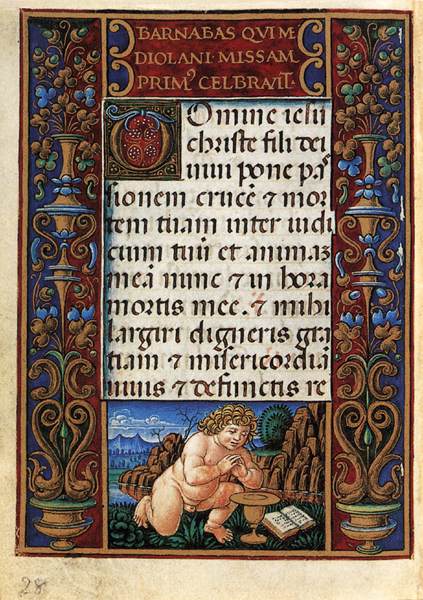 BARNABAS QVI ME
DIOLANI · MISSAM
PRIMꝰ CELBRAVIT ·
Domine iesu
christe fili dei
uiui pone pas
sionem crucē ⁊ mor
tem tuam inter iudi
cium tuū et animaz
meā nunc ⁊ in hora
mortis mee. ⁊ mihi
largiri digneris gra
tiam ⁊ misericordiā
uiuis ⁊ defunctis re
28